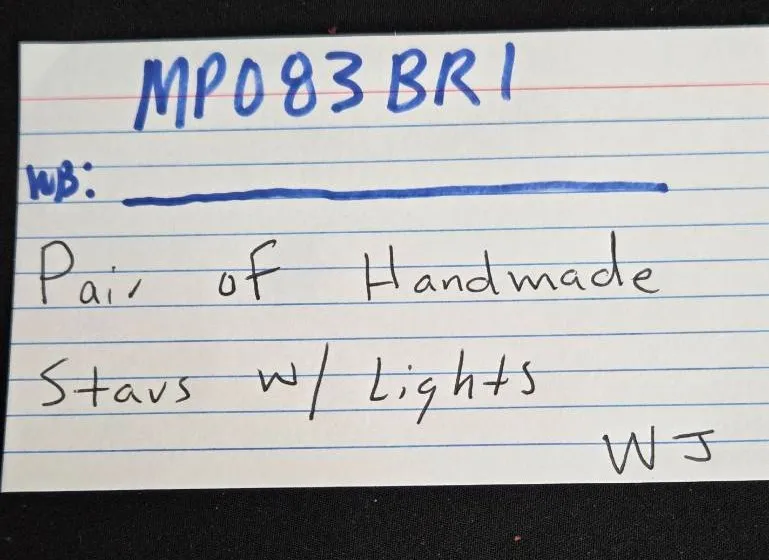 MP083BR1
WB:
Pair of Handmade
Stars w/ Lights
WJ